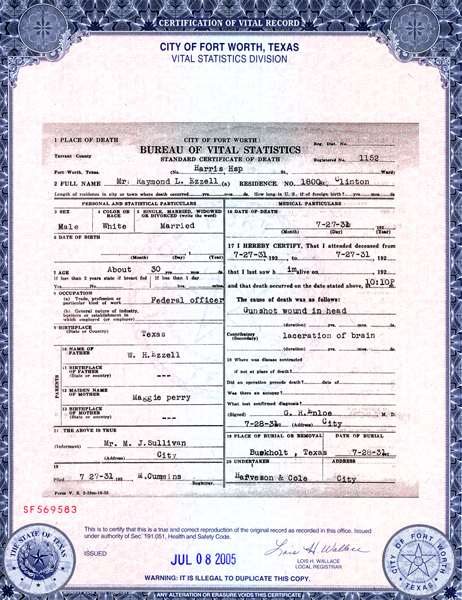 CERTIFICATION OF VITAL RECORD
CITY OF FORT WORTH, TEXAS
VITAL STATISTICS DIVISION
1 PLACE OF DEATH
CITY OF FORT WORTH
BUREAU OF VITAL STATISTICS
STANDARD CERTIFICATE OF DEATH
Reg. Dis. No.
Tarrant County
Registered No. 1152
Fort Worth, Texas, (No. Harris Hsp St., Ward)
2 FULL NAME Mr. Raymond L. Ezzell (a) RESIDENCE NO. 1800 Clinton
Length of residence in city or town where death occurred yrs. mos. ds. How long in U. S., if of foreign birth? yrs. mos. ds.
PERSONAL AND STATISTICAL PARTICULARS
MEDICAL PARTICULARS
3 SEX
4 COLOR OR RACE
5 SINGLE, MARRIED, WIDOWED OR DIVORCED (write the word)
Male White Married
16 DATE OF DEATH
7-27-31 192
(Month) (Day) (Year)
6 DATE OF BIRTH
(Month) (Day) (Year)
17 I HEREBY CERTIFY, That I attended deceased from
7-27-31 192 to 7-27-31 192
7 AGE About 30 yrs. mos. ds.
If less than 2 years state if breast fed
If less than 1 day
Yes No hrs. min.
that I last saw h im alive on 192
and that death occurred on the date stated above, 10:10P
8 OCCUPATION
(a) Trade, profession or particular kind of work Federal officer
(b) General nature of industry, business or establishment in which employed (or employer)
The cause of death was as follows:
Gunshot wound in head
(duration) yrs. mos. ds.
9 BIRTHPLACE
(State or Country) Texas
Contributory (Secondary) laceration of brain
(duration) yrs. mos. ds.
PARENTS
10 NAME OF FATHER W. H. Ezzell
11 BIRTHPLACE OF FATHER
(State or country) ---
12 MAIDEN NAME OF MOTHER Maggie perry
13 BIRTHPLACE OF MOTHER
(State or country) ---
18 Where was disease contracted
if not at place of death?
Did an operation precede death? date of
Was there an autopsy?
What test confirmed diagnosis?
(Signed) G. H. Enloe M. D.
7-28-31 192 (Address) City
14 THE ABOVE IS TRUE
(Informant) Mr. M. J. Sullivan
(Address) City
19 PLACE OF BURIAL OR REMOVAL
DATE OF BURIAL
Buckholt, Texas 7-28-31 192
15
Filed 7 27-31 192 M. Cummins Registrar.
20 UNDERTAKER
ADDRESS
Harveson & Cole City
SF569583
This is to certify that this is a true and correct reproduction of the original record as recorded in this office. Issued
under authority of Sec. 191.051, Health and Safety Code.
ISSUED
JUL 08 2005
Lois H. Wallace
LOIS H. WALLACE
LOCAL REGISTRAR
WARNING: IT IS ILLEGAL TO DUPLICATE THIS COPY.
ANY ALTERATION OR ERASURE VOIDS THIS CERTIFICATE
THE STATE OF TEXAS
CITY OF FORT WORTH
TEXAS